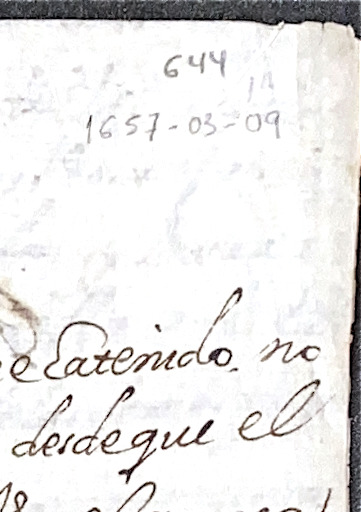 644
1657-03-09
e Eatenido. no
desde que el